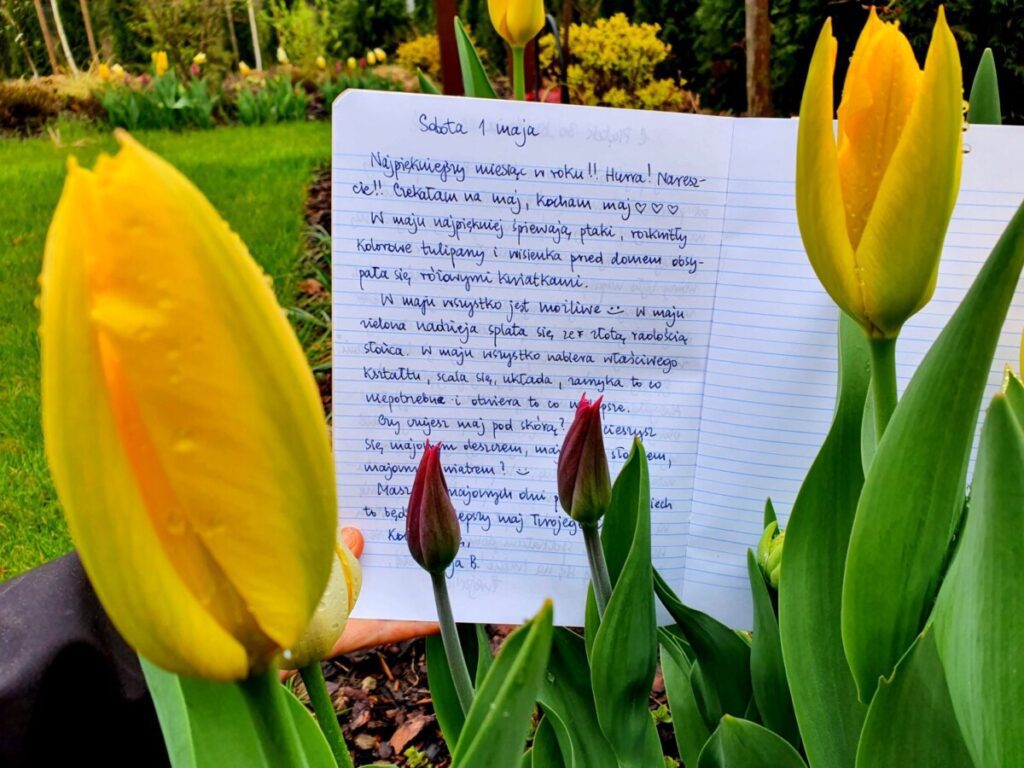 Sobota 1 maja
Najpiękniejszy miesiąc w roku!! Hurra! Naresz-
cie!! Czekałam na maj, kocham maj♡♡♡
W maju najpiękniej śpiewają ptaki, rozkwitły
kolorowe tulipany i wisienka przed domem obsy-
pała się różowymi kwiatkami.
W maju wszystko jest możliwe W maju
zielona nadzieja splata się ze złotą radością
słońca. W maju wszystko nabiera właściwego
kształtu, scala się, układa, zamyka to co
niepotrzebne i otwiera to co
Czy czujesz maj pod skórą?
się deszczem,
majowym wiatrem?
Masz majowych dni
to maj Twojego
B.